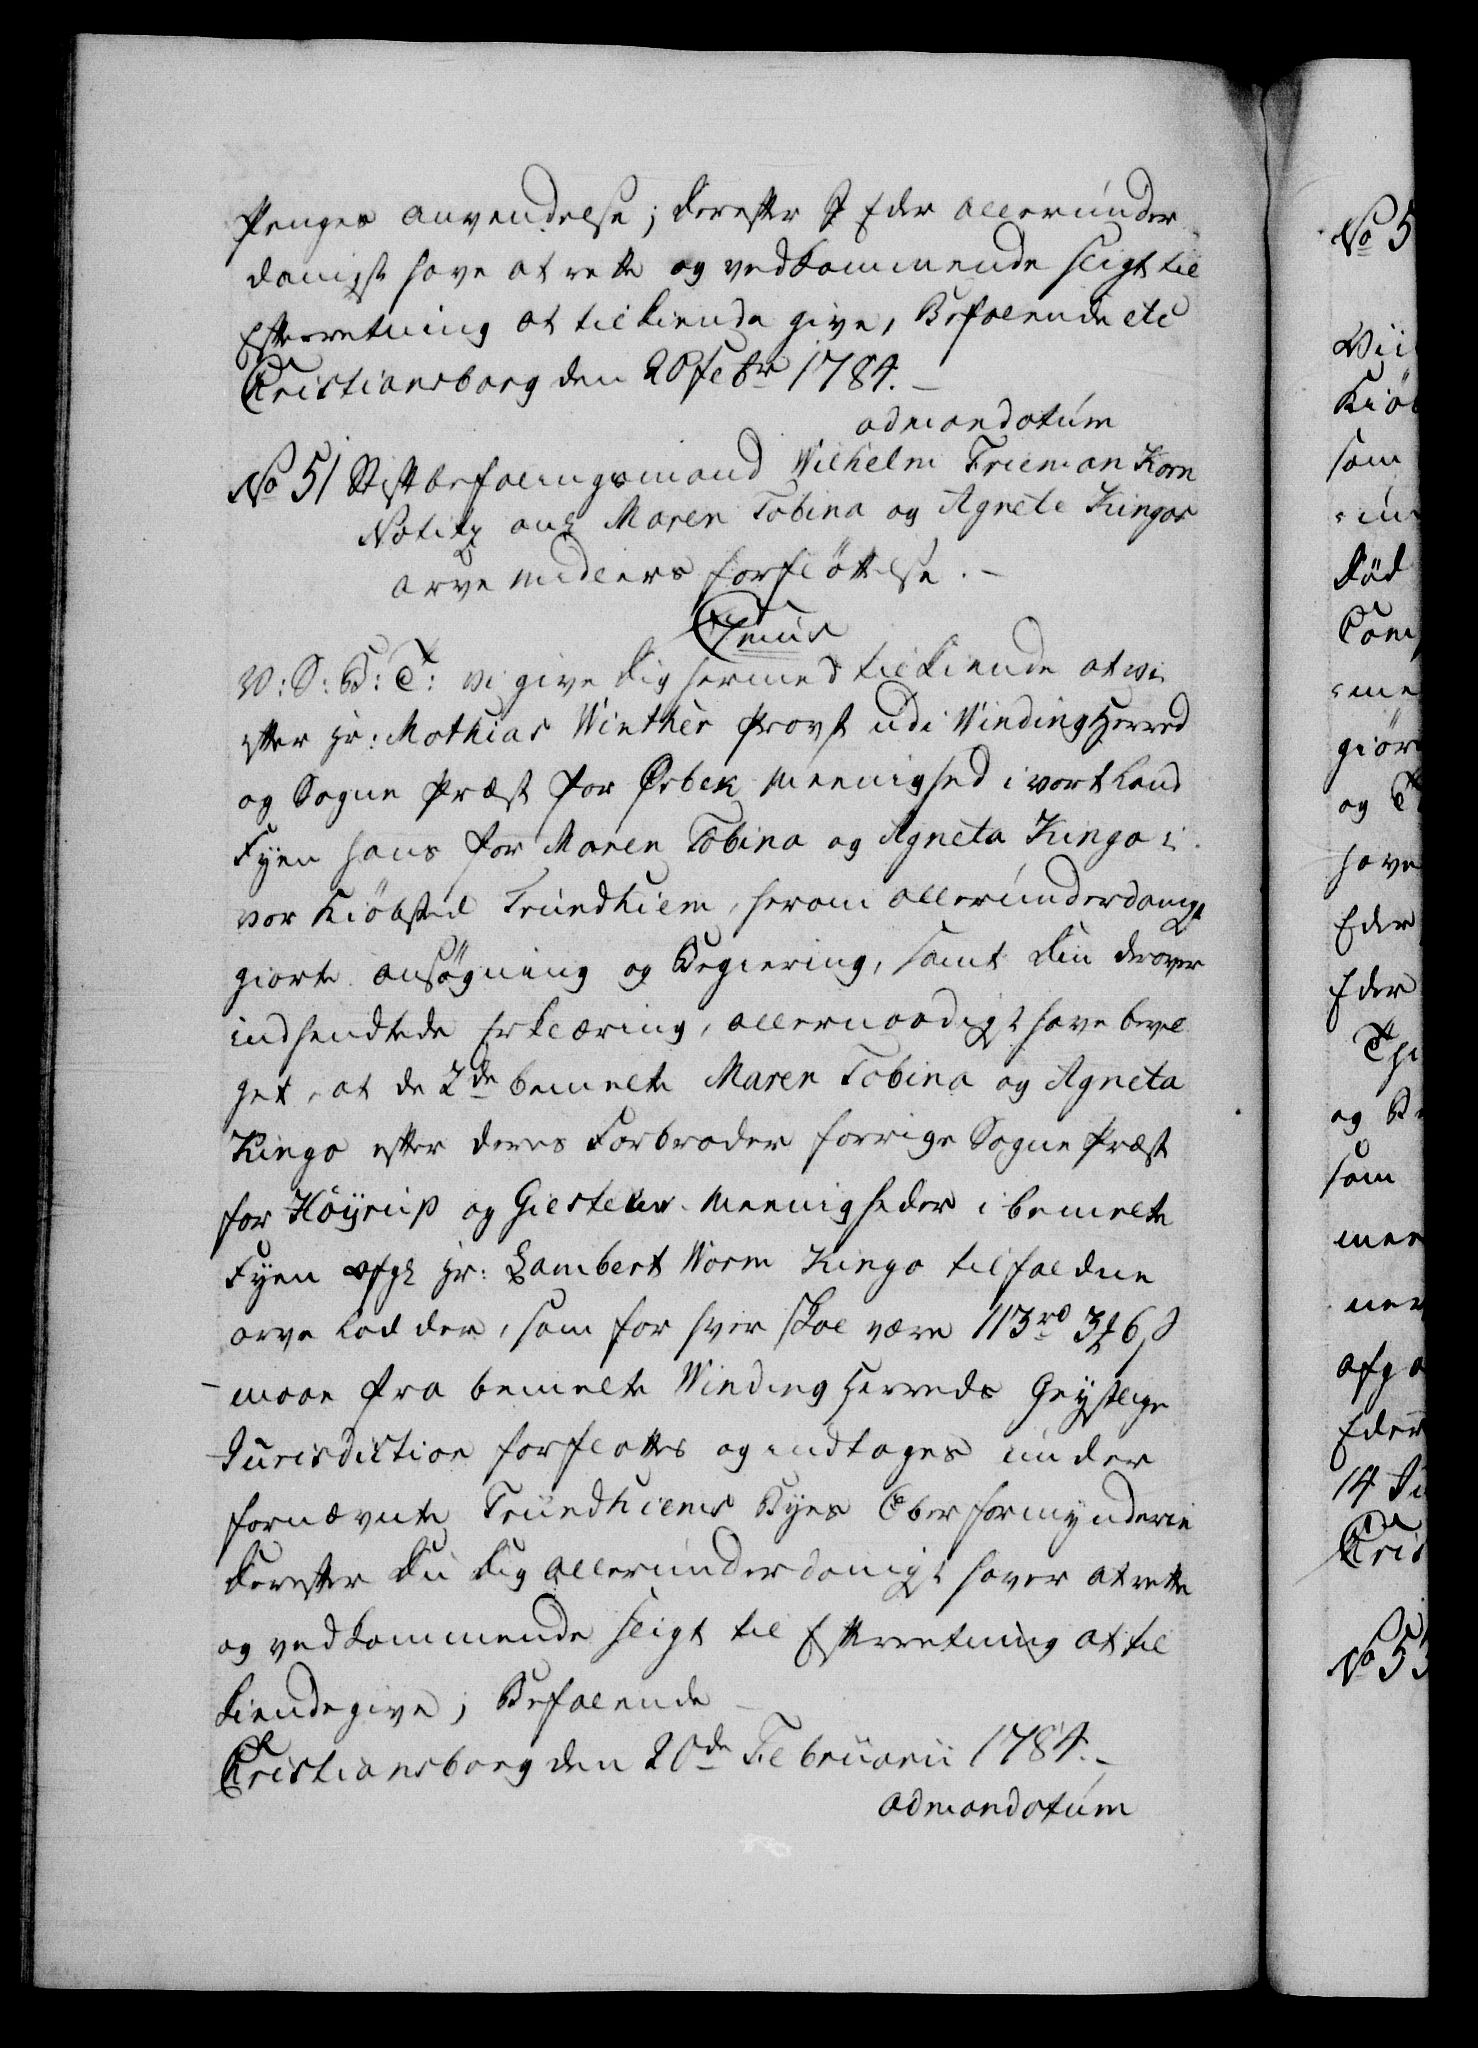 Penges anvendelse; derefter I Eder allerunder
danigst have at rette og vedkommende sligt til
Efterretning at tilkiende give, Befalende etc
Cristiansborg den 20 Febr 1784.
admandatum
No 51 Stiftbefalingsmand Wilhelm Frieman Korn
Notitz ang Maren Tobina og Agnete Kingos
arve midlers forfløttelse.
C7mus
V: S: G: T: vi give dig hermed tilkiende at wi
efter Hr: Mathias Winther Provst udi Winding Herred
og Sogne Præst for Ørbek Meenighed i vort Land
Fyen hans for Maren Tobina og Agneta Kingo i
vor Kiøbsted Trundhiem, herom allerunderdanigst
giorte ansøgning og Begiering, samt din derover
indsendte de Erklæring, allernaadigst have bevil
get, at de 2de bemelte Maren Tobina og Agneta
Kingo efter deres Farbroder forrige Sogne Præst
for Höyrup og Giestelev Meenigheder i bemelte
Fyen afgl Hr: Lambert Worm Kingo tilfaldne
arve Lodder, som for hver skal være 113 rd 3 ₰ 6 s
maae fra bemelte Winding Herreds Geystlige
Jurisdiction forflottes og indtages under
fornævnte Trundhiems Byes Oberformynderie
derefter du dig allerunderdanigst haver at rette
og vedkommende sligt til Efterretning at til
kiende give; Befalende
Cristiansborg den 20de Februarii 1784.
admandatum
No 5
Kiø
som
død
Com
giör
og T
have
Eder
Eder
Thi
og B
som
afga
Eder
14 Ju
Cris
No 53